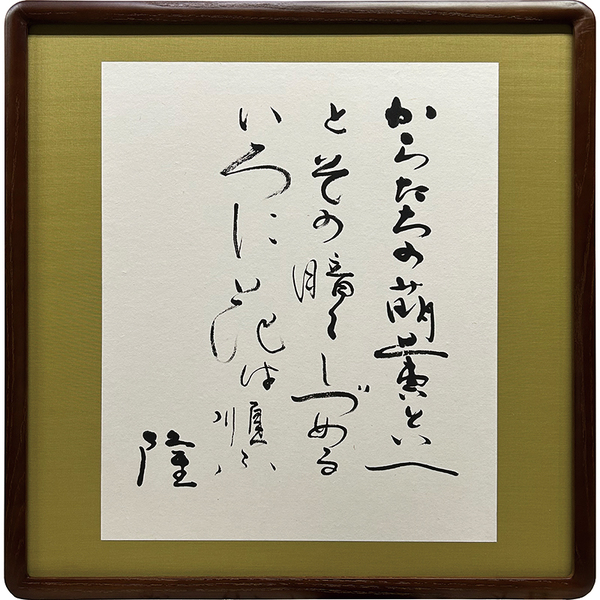 からたちの萌黄といへ
とその暗くしづめる
いろに花は順ふ
隆